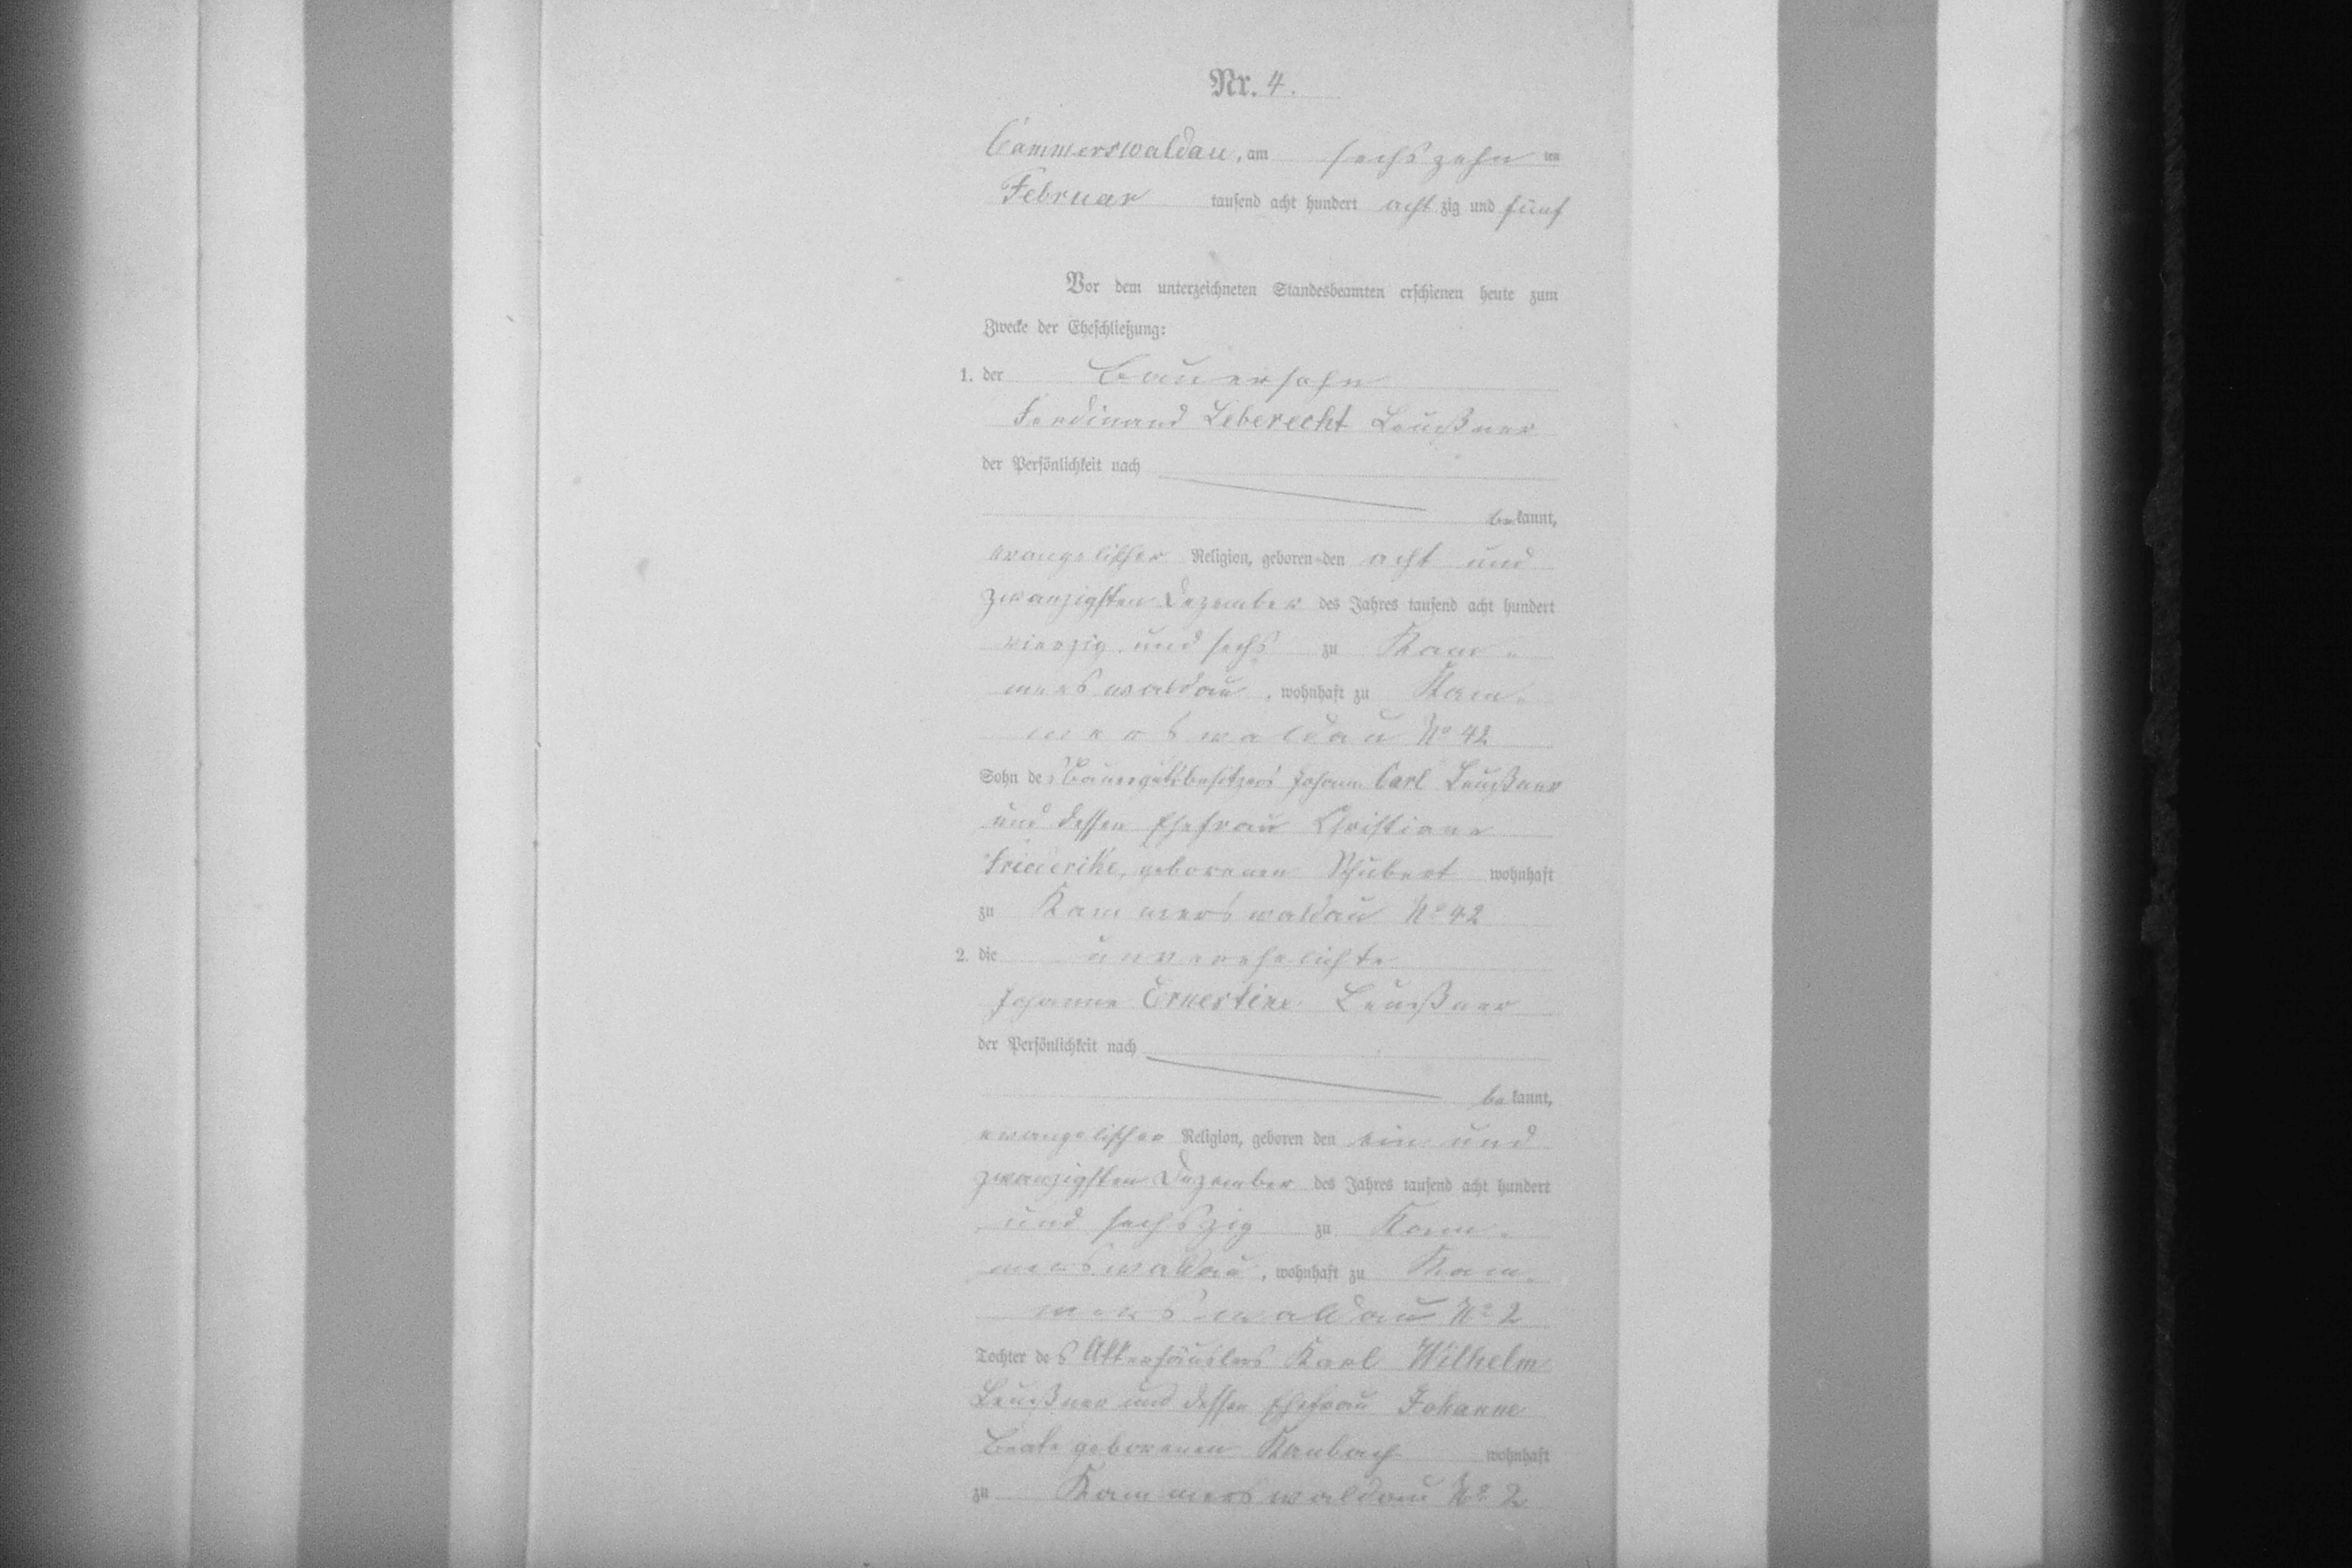 Nr. 4.
Cammerswaldau, am sechszehn ten
Februar tausend acht hundert acht zig und fünf
Vor dem unterzeichneten Standesbeamten erschienen heute zum
Zwecke der Eheschließung:
1. der Bauersohn
Ferdinand Leberecht Leußner
der Persönlichkeit nach
be kannt,
evangelischer Religion, geboren den acht und
zwanzigsten Dezember des Jahres tausend acht hundert
vierzig und sechs zu Kam-
merswaldau, wohnhaft zu Kam-
merswaldau No 42
Sohn des Bauergutsbesitzers Johann Carl Leußner
und dessen Ehefrau Christiane
Friederike, geborenen Schubert wohnhaft
zu Kammerswaldau No 42
2. die unverehelichte
Johanne Ernestine Leußner
der Persönlichkeit nach
be kannt,
evangelischer Religion, geboren den ein und
zwanzigsten Dezember des Jahres tausend acht hundert
und sechszig zu Kam-
merswaldau, wohnhaft zu Kam-
merswaldau No 2
Tochter des Karl Wilhelm
Leußner und dessen Ehefrau Johanne
Beate geborenen wohnhaft
zu Kammerswaldau No 2